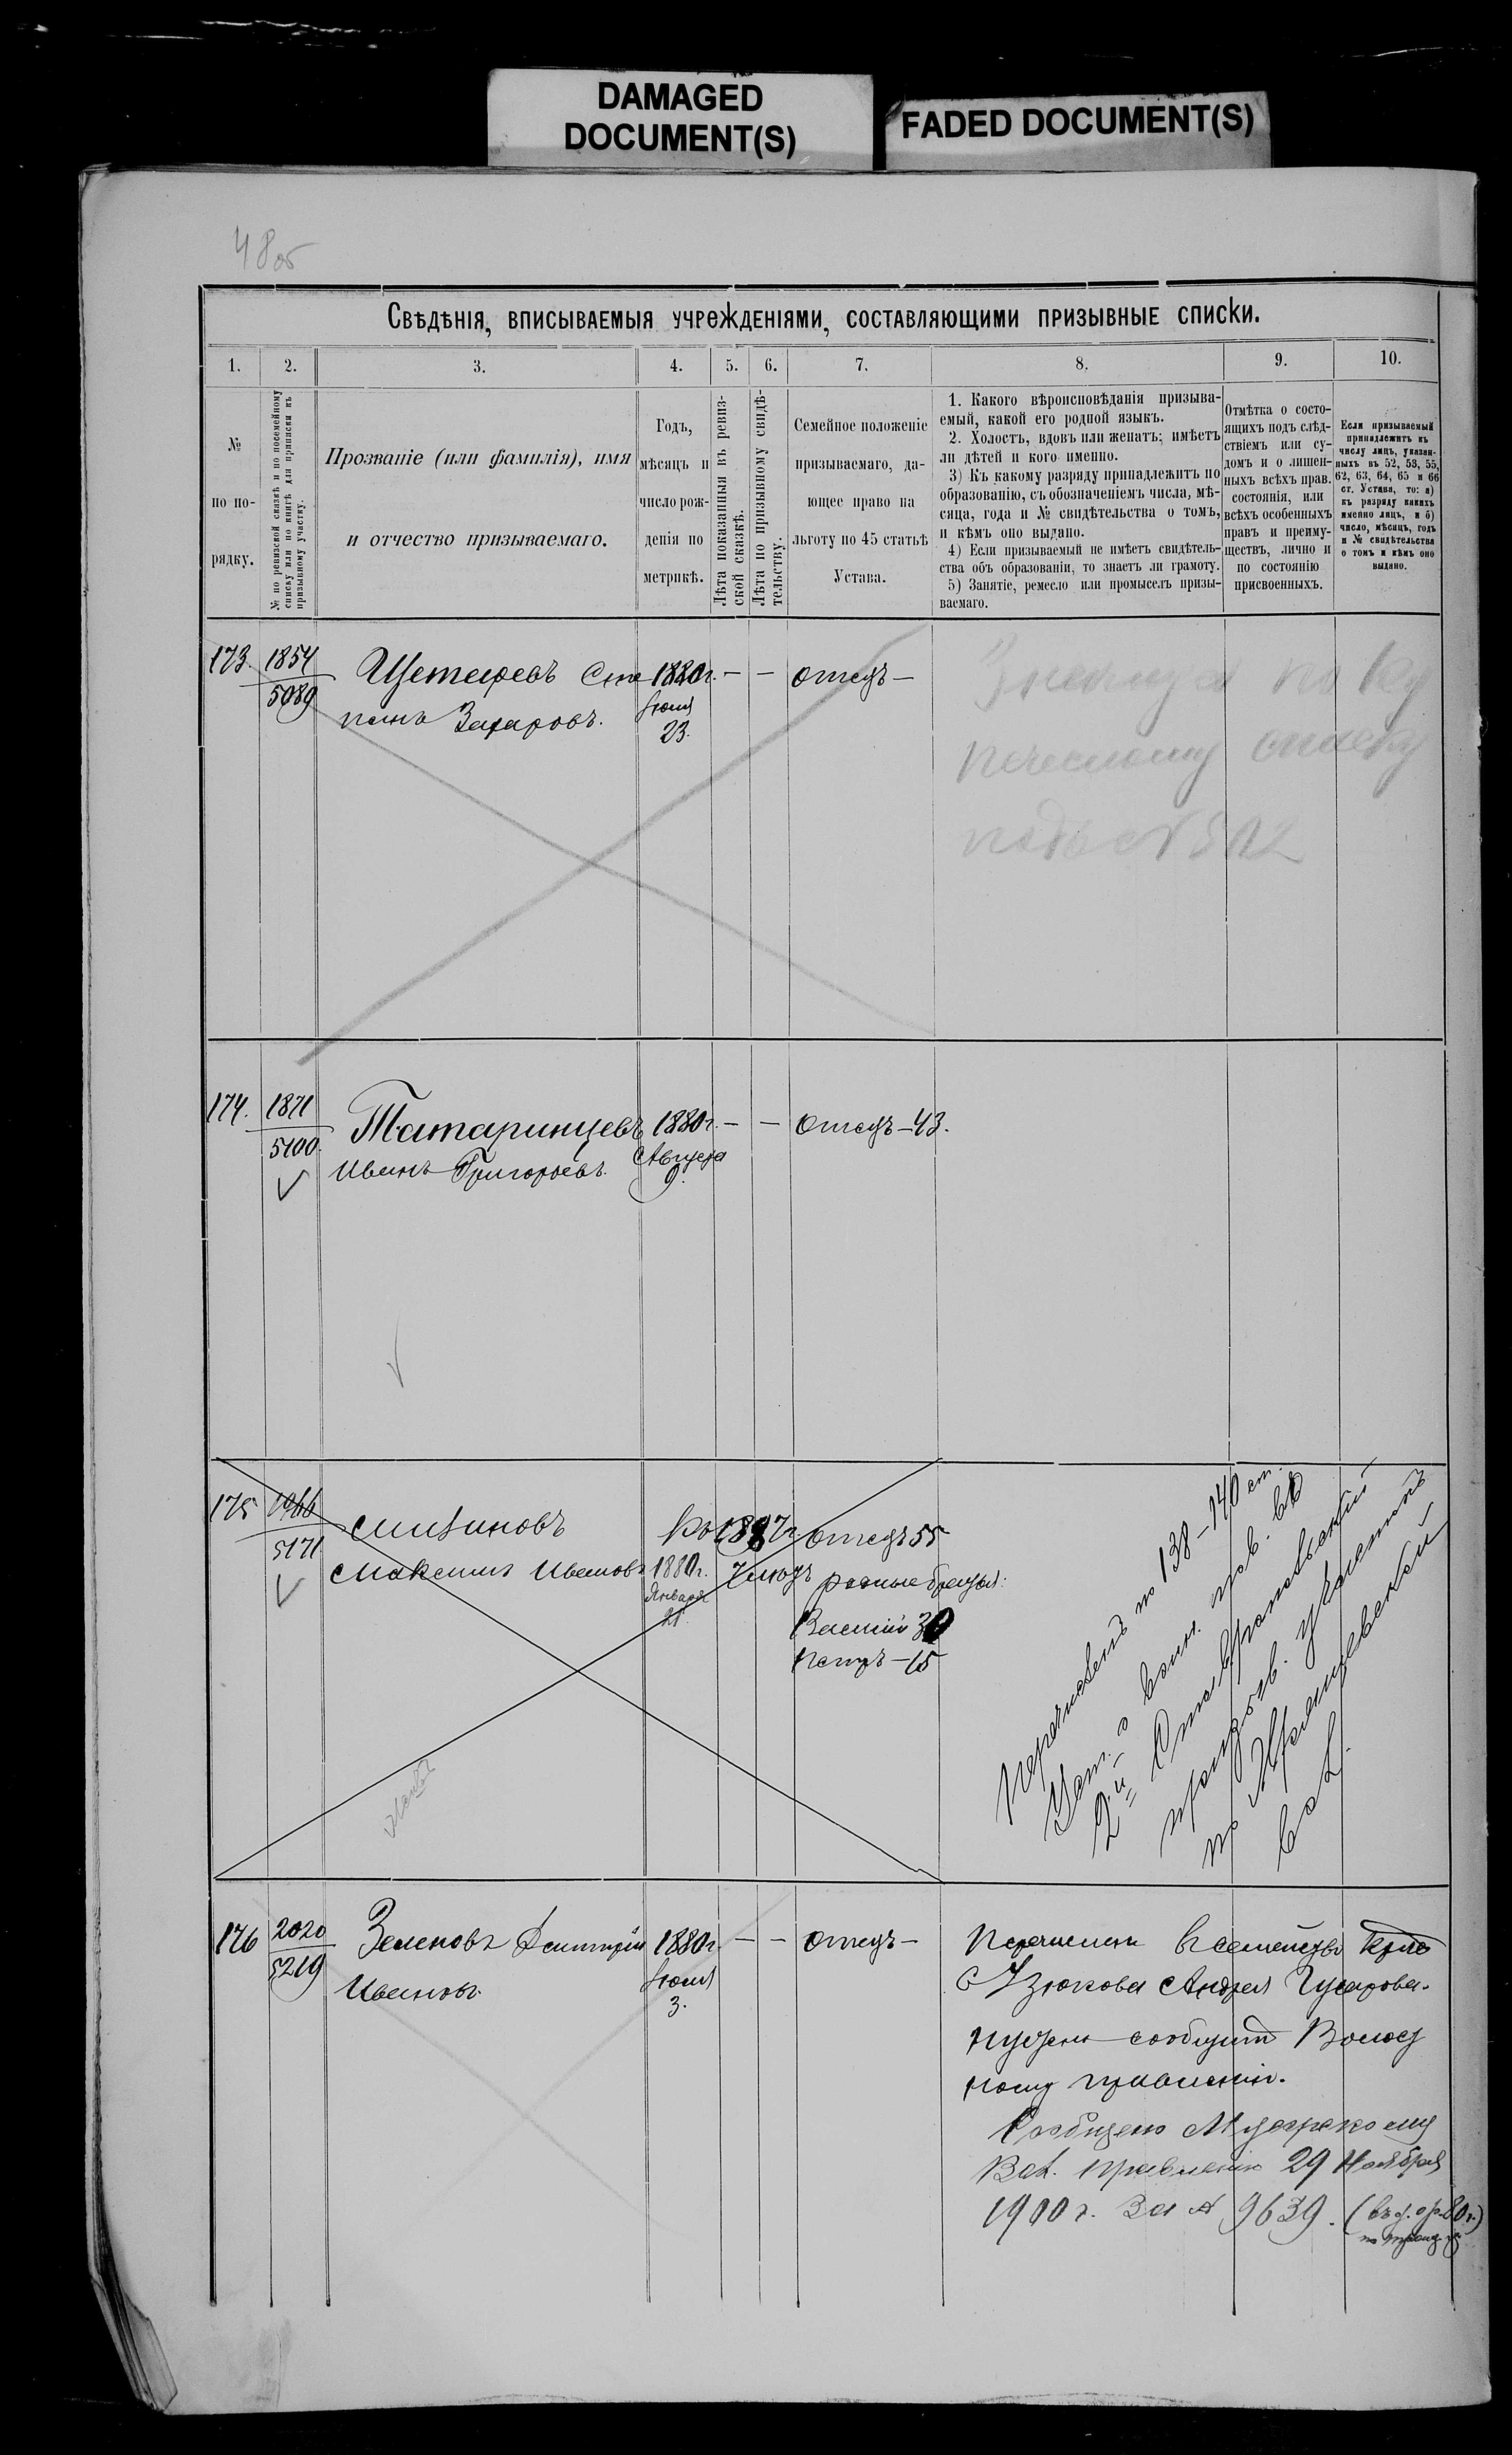 DAMAGED
DOCUMENT(S)
FADED DOCUMENT(S)
48об
Свѣдѣнія, вписываемыя учрежденіями, составляющими призывные списки.
1.
2.
3.
4.
5.
6.
7.
8.
9.
10.
№
по по-
рядку.
№ по ревизской сказкѣ и по посемейному
списку или по книгѣ для приписки къ
призывному участку.
Прозваніе (или фамилія), имя
и отчество призываемаго.
Годъ,
мѣсяцъ и
число рож-
денія по
метрикѣ.
Лѣта показанныя въ ревиз-
ской сказкѣ.
Лѣта по призывному свидѣ-
тельству.
Семейное положеніе
призываемаго, да-
ющее право на
льготу по 45 статьѣ
Устава.
1. Какого вѣроисповѣданія призыва-
емый, какой его родной языкъ.
2. Холостъ, вдовъ или женатъ; имѣетъ
ли дѣтей и кого именно.
3) Къ какому разряду принадлежитъ по
образованію, съ обозначеніемъ числа, мѣ-
сяца, года и № свидѣтельства о томъ,
и кѣмъ оно выдано.
4) Если призываемый не имѣетъ свидѣтель-
ства объ образованіи, то знаетъ ли грамоту.
5) Занятіе, ремесло или промыселъ призы-
ваемаго.
Отмѣтка о состо-
ящихъ подъ слѣд-
ствіемъ или су-
домъ и о лишен-
ныхъ всѣхъ прав.
состоянія, или
всѣхъ особенныхъ
правъ и преиму-
ществъ, лично и
по состоянію
присвоенныхъ.
Если призываемый
принадлежитъ къ
числу лицъ, указан-
ныхъ въ 52, 53, 55,
62, 63, 64, 65 и 66
ст. Устава, то: а)
къ разряду какихъ
именно лицъ, и б)
число, мѣсяцъ, годъ
и № свидѣтельства
о томъ и кѣмъ оно
выдано.
173. 1854 Сте- 1880г. — — отецъ —
5089 панъ Захаровъ. Іюля
23.
по
списку
174. 1871 Татаринцевъ 1880г. — — отецъ — 43.
5100. Иванъ Григорьевъ. Августа
9.
175 1966 отецъ 55
5171 Максимъ Ивановъ 1880г. родные братья:
Января
21
Василій
Петръ — 15
по 138—140 ст.
Уст. о воин. пов. во
2й Ставропольскій
призыв. участокъ
по
вол.
176 2020 Зеленовъ Дмитрій 1880г. — — отецъ —
5219 Ивановъ. Іюля
3.
Перечислен в семейство
Андрея Гусарова.
сообщить Волост
ному правленію.
Сообщено
Вол. правленію 29 Ноября
1900 г. за № 9639.